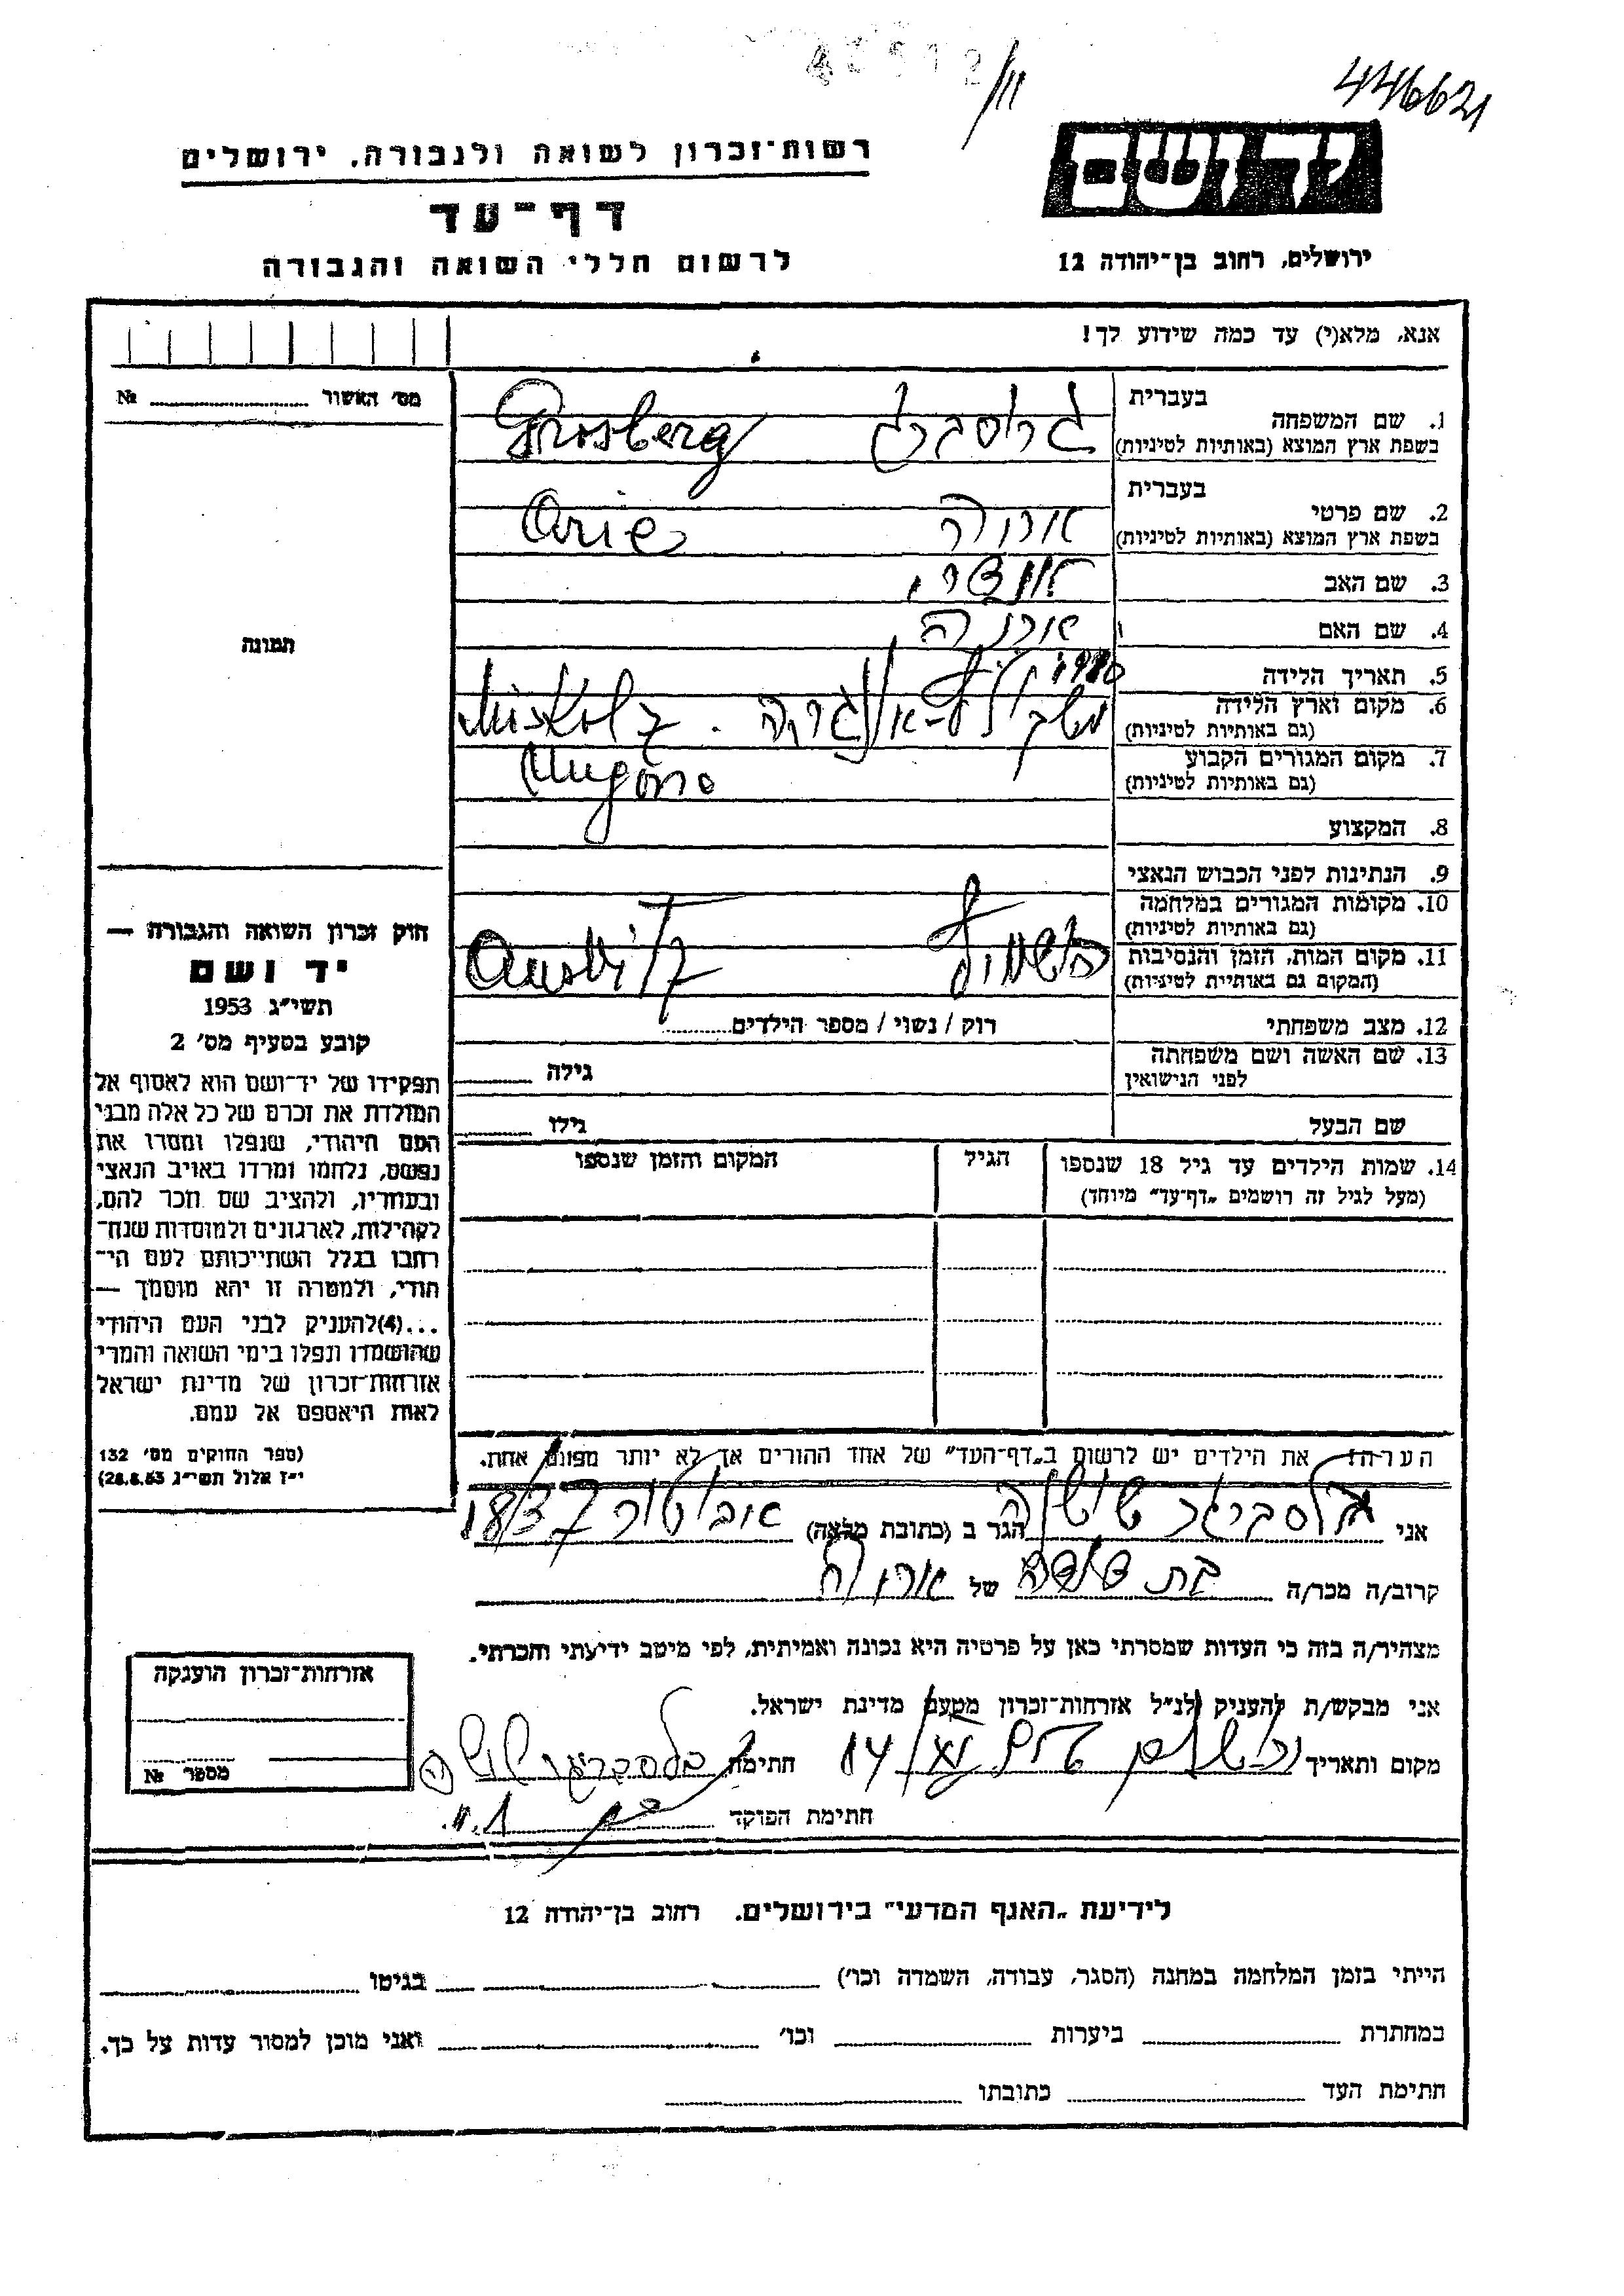 446621
רשות־זכרון לשואה ולגבורה, ירושלים
יד ושם
דף־עד
לרשום חללי השואה והגבורה
ירושלים, רחוב בן־יהודה 12
אנא, מלא(י) עד כמה שידוע לך!
מס׳ האשור № 
1. שם המשפחה
בעברית גרוסברג
בשפת ארץ המוצא (באותיות לטיניות) Grosberg
2. שם פרטי
בעברית
בשפת ארץ המוצא (באותיות לטיניות)
3. שם האב
4. שם האם
5. תאריך הלידה
6. מקום וארץ הלידה
(גם באותיות לטיניות) Miskolz
7. מקום המגורים הקבוע
(גם באותיות לטיניות)
8. המקצוע
9. הנתינות לפני הכבוש הנאצי
10. מקומות המגורים במלחמה
(גם באותיות לטיניות)
11. מקום המות, הזמן והנסיבות
(המקום גם באותיית לטיניות) Ausvitz
12. מצב משפחתי רווק / נשוי / מספר הילדים
13. שם האשה ושם משפחתה
לפני הנישואין גילה
שם הבעל גילו
14. שמות הילדים עד גיל 18 שנספו הגיל המקום והזמן שנספו
(מעל לגיל זה רושמים „דף־עד״ מיוחד)
תמונה
חוק זכרון השואה והגבורה —
יד ושם
תשי״ג 1953
קובע בסעיף מס׳ 2
תפקידו של יד־ושם הוא לאסוף אל
המולדת את זכרם של כל אלה מבני
העם היהודי, שנפלו ומסרו את
נפשם, נלחמו ומרדו באויב הנאצי
ובעוזריו, ולהציב שם וזכר להם,
לקהילות, לארגונים ולמוסדות שנח־
רבו בגלל השתייכותם לעם הי־
הודי, ולמטרה זו יהא מוסמך —
...(4)להעניק לבני העם היהודי
שהושמדו ונפלו בימי השואה והמרי
אזרחות־זכרון של מדינת ישראל
לאות היאספם אל עמם.
(ספר החוקים מס׳ 132
י״ז אלול תשי״ג 28.8.53)
הערה: את הילדים יש לרשום ב„דף־העד״ של אחד ההורים אך לא יותר מפעם אחת.
אני הגר ב (כתובת מלאה) 18/37
קרוב/ה מכר/ה בת דודה של
מצהיר/ה בזה כי העדות שמסרתי כאן על פרטיה היא נכונה ואמיתית, לפי מיטב ידיעתי והכרתי.
אני מבקש/ת להעניק לנ״ל אזרחות־זכרון מטעם מדינת ישראל.
מקום ותאריך חתימה
חתימת הפוקד
אזרחות־זכרון הוענקה
מספר №
לידיעת „האגף המדעי״ בירושלים. רחוב בן־יהודה 12
הייתי בזמן המלחמה במחנה (הסגר, עבודה, השמדה וכו׳) בגיטו
במחתרת ביערות וכו׳ ואני מוכן למסור עדות על כך.
חתימת העד כתובתו